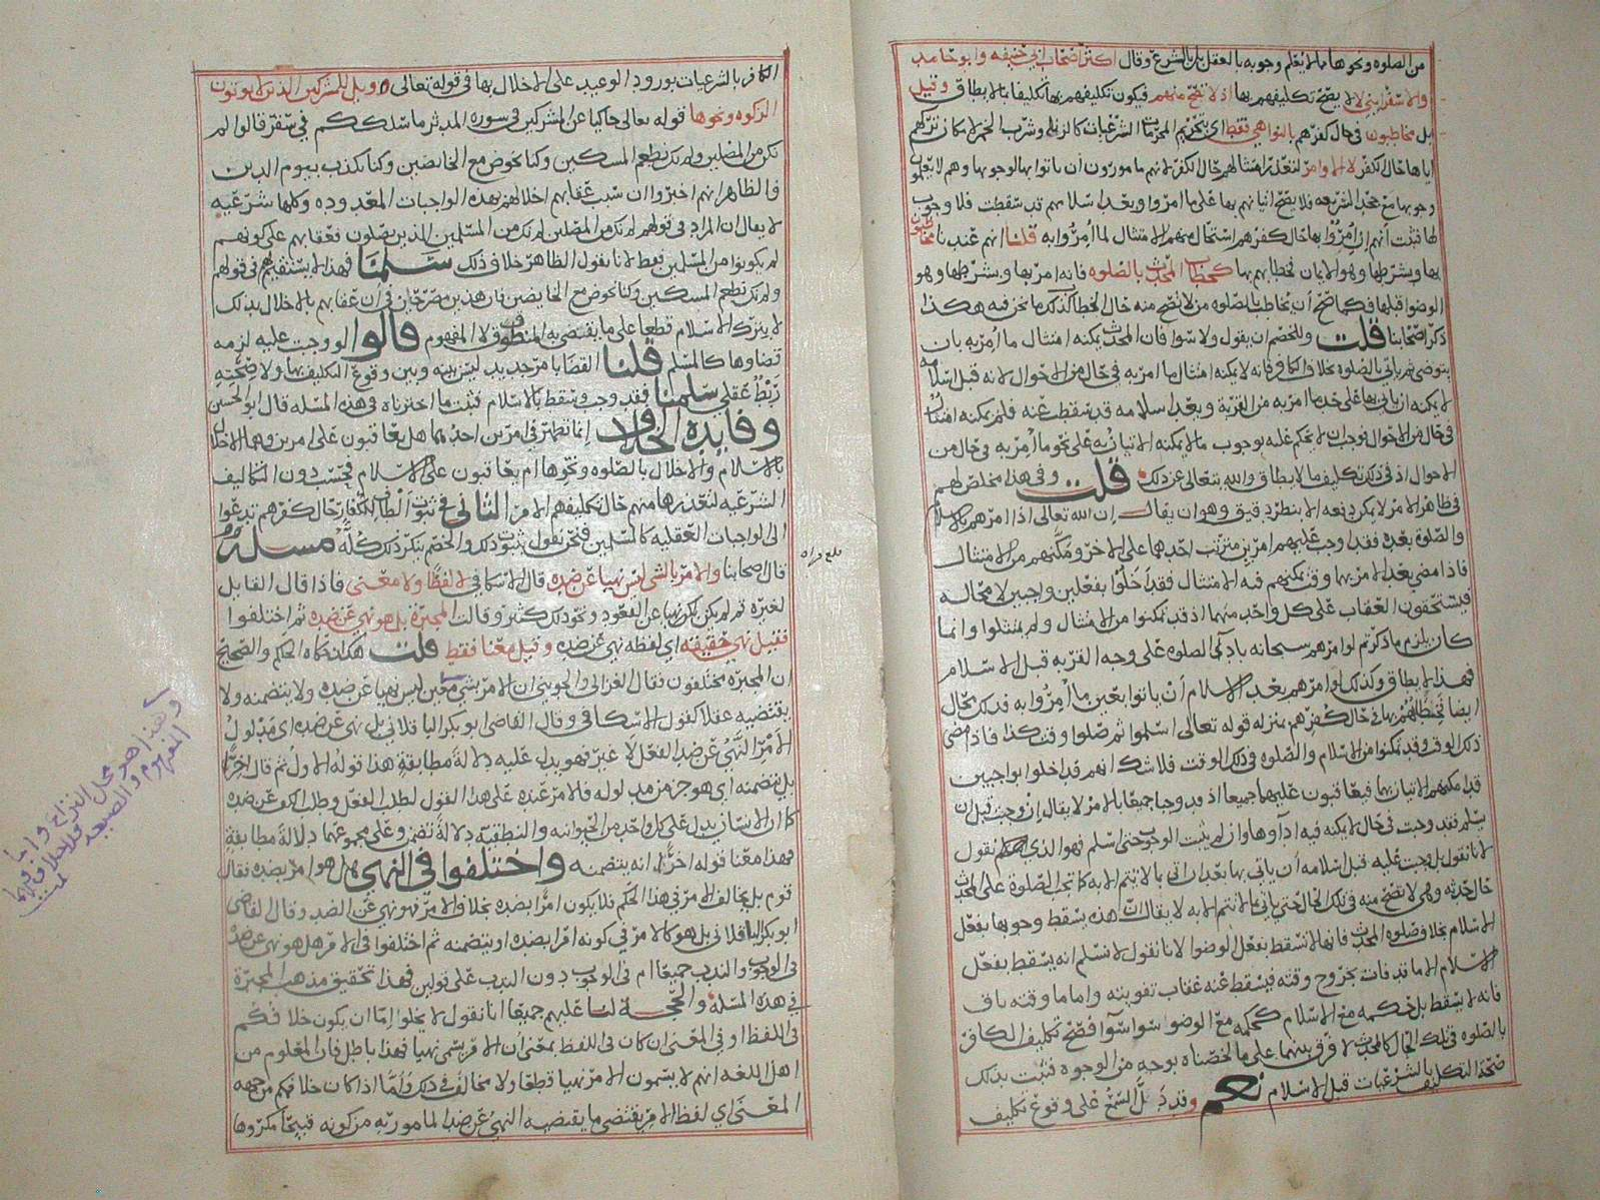 من الصلوه ونحوها مما لا يعلم وجوبه بالعقل بل بالشرع وقال اكثر اصحاب ابي حنيفه وابو حامد
والاسفرايني لا يصح تكليفهم بها اذ لا تصح منهم فيكون تكليفهم بها تكليفا بما لا يطاق وقيل
بل مخاطبون في حال كفرهم بالنواهي فقط اي بتحريم المحرمات الشرعيات كالزنا وشرب الخمر لامكان تركهم
اياها حال الكفر لا الاوامر لتعذر امتثالهم حال الكفر لانهم مامورون ان ياتوا بها لوجوبها وهم لا يعلمون
وجوبها مع جحد الشريعه فلا يصح اتيانهم بها على ما امروا وبعد اسلامهم قد سقطت فلا وجوب
لها فثبت انهم ان امروا بها حال كفرهم استحال منهم الامتثال لما امروا به قلنا انهم عندنا مخاطبون
بها وبشرطها وهو الايمان فخطابهم بها كخطاب المحدث بالصلوه فانه امر بها وبشرطها وهو
الوضوا قبلها فكما صح ان يخاطب بالصلوه من لا تصح منه حال الخطاب كذلك ما نحن فيه هكذا
ذكر اصحابنا قلت وللخصم ان يقول ولا سوا فان المحدث يمكنه امتثال ما امر به بان
يتوضى ثم ياتي بالصلوه بخلاف الكافر فانه لا يمكنه امتثال ما امر به في حال من الاحوال لانه قبل اسلامه
لا يمكنه ان ياتي بها على حد ما امر به من القربة وبعد اسلامه قد سقطت عنه فلم يمكنه امتثال
في حال من الاحوال فوجب ان لا يحكم عليه بوجوب ما لا يمكنه الاتيان به على نحو ما امر به في حال من
الاحوال اذ في ذلك تكليف ما لا يطاق والله يتعالى عن ذلك قلت وفي هذا مخلص لهم
في ظاهر الامر لا يمكن دفعه الا بنظر دقيق وهو ان يقال ان الله تعالى اذا امرهم بالاسلام
والصلوة بعده فقد اوجب عليهم امرين مترتب احدهما على الاخر ومكنهم من الامتثال
فاذا مضى بعد الامر بهما وقت يمكنهم فيه الامتثال فقد اخلوا بفعلين واجبين لا محاله
فيستحقون العقاب على كل واحد منهما اذ قد تمكنوا من الامتثال ولم يمتثلوا وانما
كان يلزم ما ذكرتم لو امرهم سبحانه بادآ الصلوه على وجه القربه قبل الاسلام
فهذا لا يطاق وكذلك لو امرهم بعد الاسلام ان ياتوا بعين ما امروا به فذلك محال
ايضا فخطابهم بها في حال كفرهم بمنزله قوله تعالى اسلموا ثم صلوا وقت كذا فاذا مضى
ذلك الوقت وقد تمكنوا من الاسلام والصلوه في ذلك الوقت فلا شك انهم قد اخلوا بواجبين
قد امكنهم الاتيان بهما فيعاقبون عليهما جميعا اذ قد وجبا جميعا بالامر لا يقال ان وجبت قبل ان
يسلم فقد وجبت في حال لا يمكنه فيه اداوها وان لم يثبت الوجوب حتى اسلم فهو الذي نقول
لانا نقول بل وجبت عليه قبل اسلامه ان ياتي بها بعد ان اتى بما لا تتم الا به كما تجب الصلوة على المحدث
حال حدثه وهي لا تصح منه في تلك الحال حتى ياتي بما لا تتم الا به لا يقال ان هذه يسقط وجوبها بفعل
الاسلام بخلاف صلوه المحدث فانها لا تسقط بفعل الوضوا لانا نقول لا نسلم انه يسقط بفعل
الاسلام الا ما قد فات بخروج وقته فيسقط عنه عقاب تفويته واما ما وقته باق
فانه لا يسقط بل حكمه مع الاسلام كحكمه مع الوضوا سوا سوآ فصح تكليف الكافر
بالصلوه في تلك الحال كالمحدث لا فرق بينهما على ما لخصناه بوجه من الوجوه فثبت بذلك
صحة التكليف بالشرعيات قبل الاسلام نعم وقد دل السمع على وقوع تكليف
الكافر بالشرعيات بورود الوعيد على الاخلال بها في قوله تعالى وويل للمشركين الذين لا يوتون
الزكوه ونحوها قوله تعالى حاكيا عن المشركين في سوره المدثر ما سلككم في سقر قالوا لم
نكن من المصلين ولم نك نطعم المسكين وكنا نخوض مع الخايضين وكنا نكذب بيوم الدين
فالظاهر انهم اخبروا ان سبب عقابهم اخلالهم بهذه الواجبات المعدوده وكلها شرعيه
لا يقال ان المراد في قولهم لم نك من المصلين لم نك من المسلمين الذين يصلون فعقابهم على كونهم
لم يكونوا من المسلمين فقط لانا نقول الظاهر خلاف ذلك سلمنا فهذا لا يستقيم لهم في قولهم
ولم نك نطعم المسكين وكنا نخوض مع الخايضين فان هذين مصرحان في ان عقابهم بالاخلال بذلك
لا بترك الاسلام قطعا على ما يقتضي به المنطوق لا المفهوم قالوا لو وجبت عليه لزمه
قضاوها كالمسلم قلنا القضا بامر جديد ليس بينه وبين وقوع التكليف بها ولا صحته
ربط عقلي سلمنا فقد وجب وسقط بالاسلام فثبت ما اخترناه في هذه المسله قال ابو الحسين
وفايده الخلاف انما تظهر في امرين احدهما هل يعاقبون على امرين وهما الاخلال
بالاسلام والاخلال بالصلوه ونحوها ام يعاقبون على الاسلام فحسب دون التكاليف
الشرعيه لتعذرها منهم حال تكليفهم الامر الثاني في ثبوت الطاف للكفار حال كفرهم تدعوا
الى الواجبات العقليه كالمسلمين فنحن نقول بثبوت ذلك والخصم ينكر ذلك كله مسله
قال اصحابنا والامر بالشي ليس نهيا عن ضده قال الاسكافي لا لفظا ولا معنى فاذا قال القايل
لغيره قم لم يكن ذلك نهيا عن القعود ونحو ذلك كثير وقالت المجبرة بل هو نهي عن ضده ثم اختلفوا
فقيل نهي حقيقه اي لفظه نهي عن ضده وقيل معنا فقط قلت هكذا حكاه الحاكم والصحيح
ان المجبره مختلفون فقال الغزالي والجويني ان الامر بشي معين ليس نهيا عن ضده ولا يتضمنه ولا
يقتضيه عقلا كقول الاسكافي وقال القاضي ابو بكر الباقلاني بل نهي عن ضده اي مدلول
الامر النهي عن ضد الفعل لا غير فهو يدل عليه دلالة مطابقة هذا قوله الاول ثم قال اخرا
بل يتضمنه اي هو جز من مدلوله فالامر عنده على هذا القول لطلب الفعل وطلب الكف عن ضده
كما ان الانسان يدل على كل واحد من الحيوانيه والنطقيه دلالة تضمن وعلى مجموعهما دلالة مطابقة
فهذا معنا قوله اخرا انه يتضمنه واختلفوا في النهي هل هو امر بضده فقال
قوم بل يخالف الامر في هذا الحكم فلا يكون امرا بضده بخلاف الامر فهو نهي عن الضد وقال القاضي
ابو بكر الباقلاني بل هو كالامر في كونه امرا بضده او يتضمنه ثم اختلفوا في الامر هل هو نهي عن ضده
في الوجوب والندب جميعا ام في الوجوب دون الندب على قولين فهذا تحقيق مذهب المجبرة
في هذه المسلة والحجة لنا عليهم جميعا انا نقول لا يخلوا اما ان يكون خلافكم
في اللفظ او في المعنى ان كان في اللفظ بمعنى ان الامر يسمى نهيا فهذا باطل فان المعلوم من
اهل اللغه انهم لا يسمون الامر نهيا قطعا ولا مخالف في ذلك واما اذا كان خلافكم من جهه
المعنى اي لفظ الامر يقتضي ما يقتضيه النهي عن ضد المامور به من كونه قبيحا مكروها
بلغ قراه
وهذا هو محل النزاع واما في
المفهوم والصيغه فلا خلاف فيهما
تمت